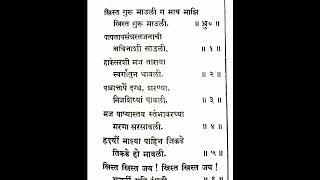 ख्रिस्त गुरू माउली ग माय माझि
ख्रिस्त गुरू माउली. ॥ धृ० ॥
पापतापसंत्रस्तजनाची
अविनाशी साउली. ॥ १ ॥
हाकेसरशी मज ताराया
स्वर्गांतुन धावली. ॥ २ ॥
पश्चात्तापें दग्ध, शरण्या,
निजशिष्यां पावली. ॥ ३ ॥
मज पाप्यास्तव स्तंभावरच्या
मरणा सरसावली. ॥ ४ ॥
हृदयीं माझ्या पाहिन जिकडे
तिकडे हो मावली. ॥ ५ ॥
ख्रिस्त ख्रिस्त जय ! ख्रिस्त ख्रिस्त जय !